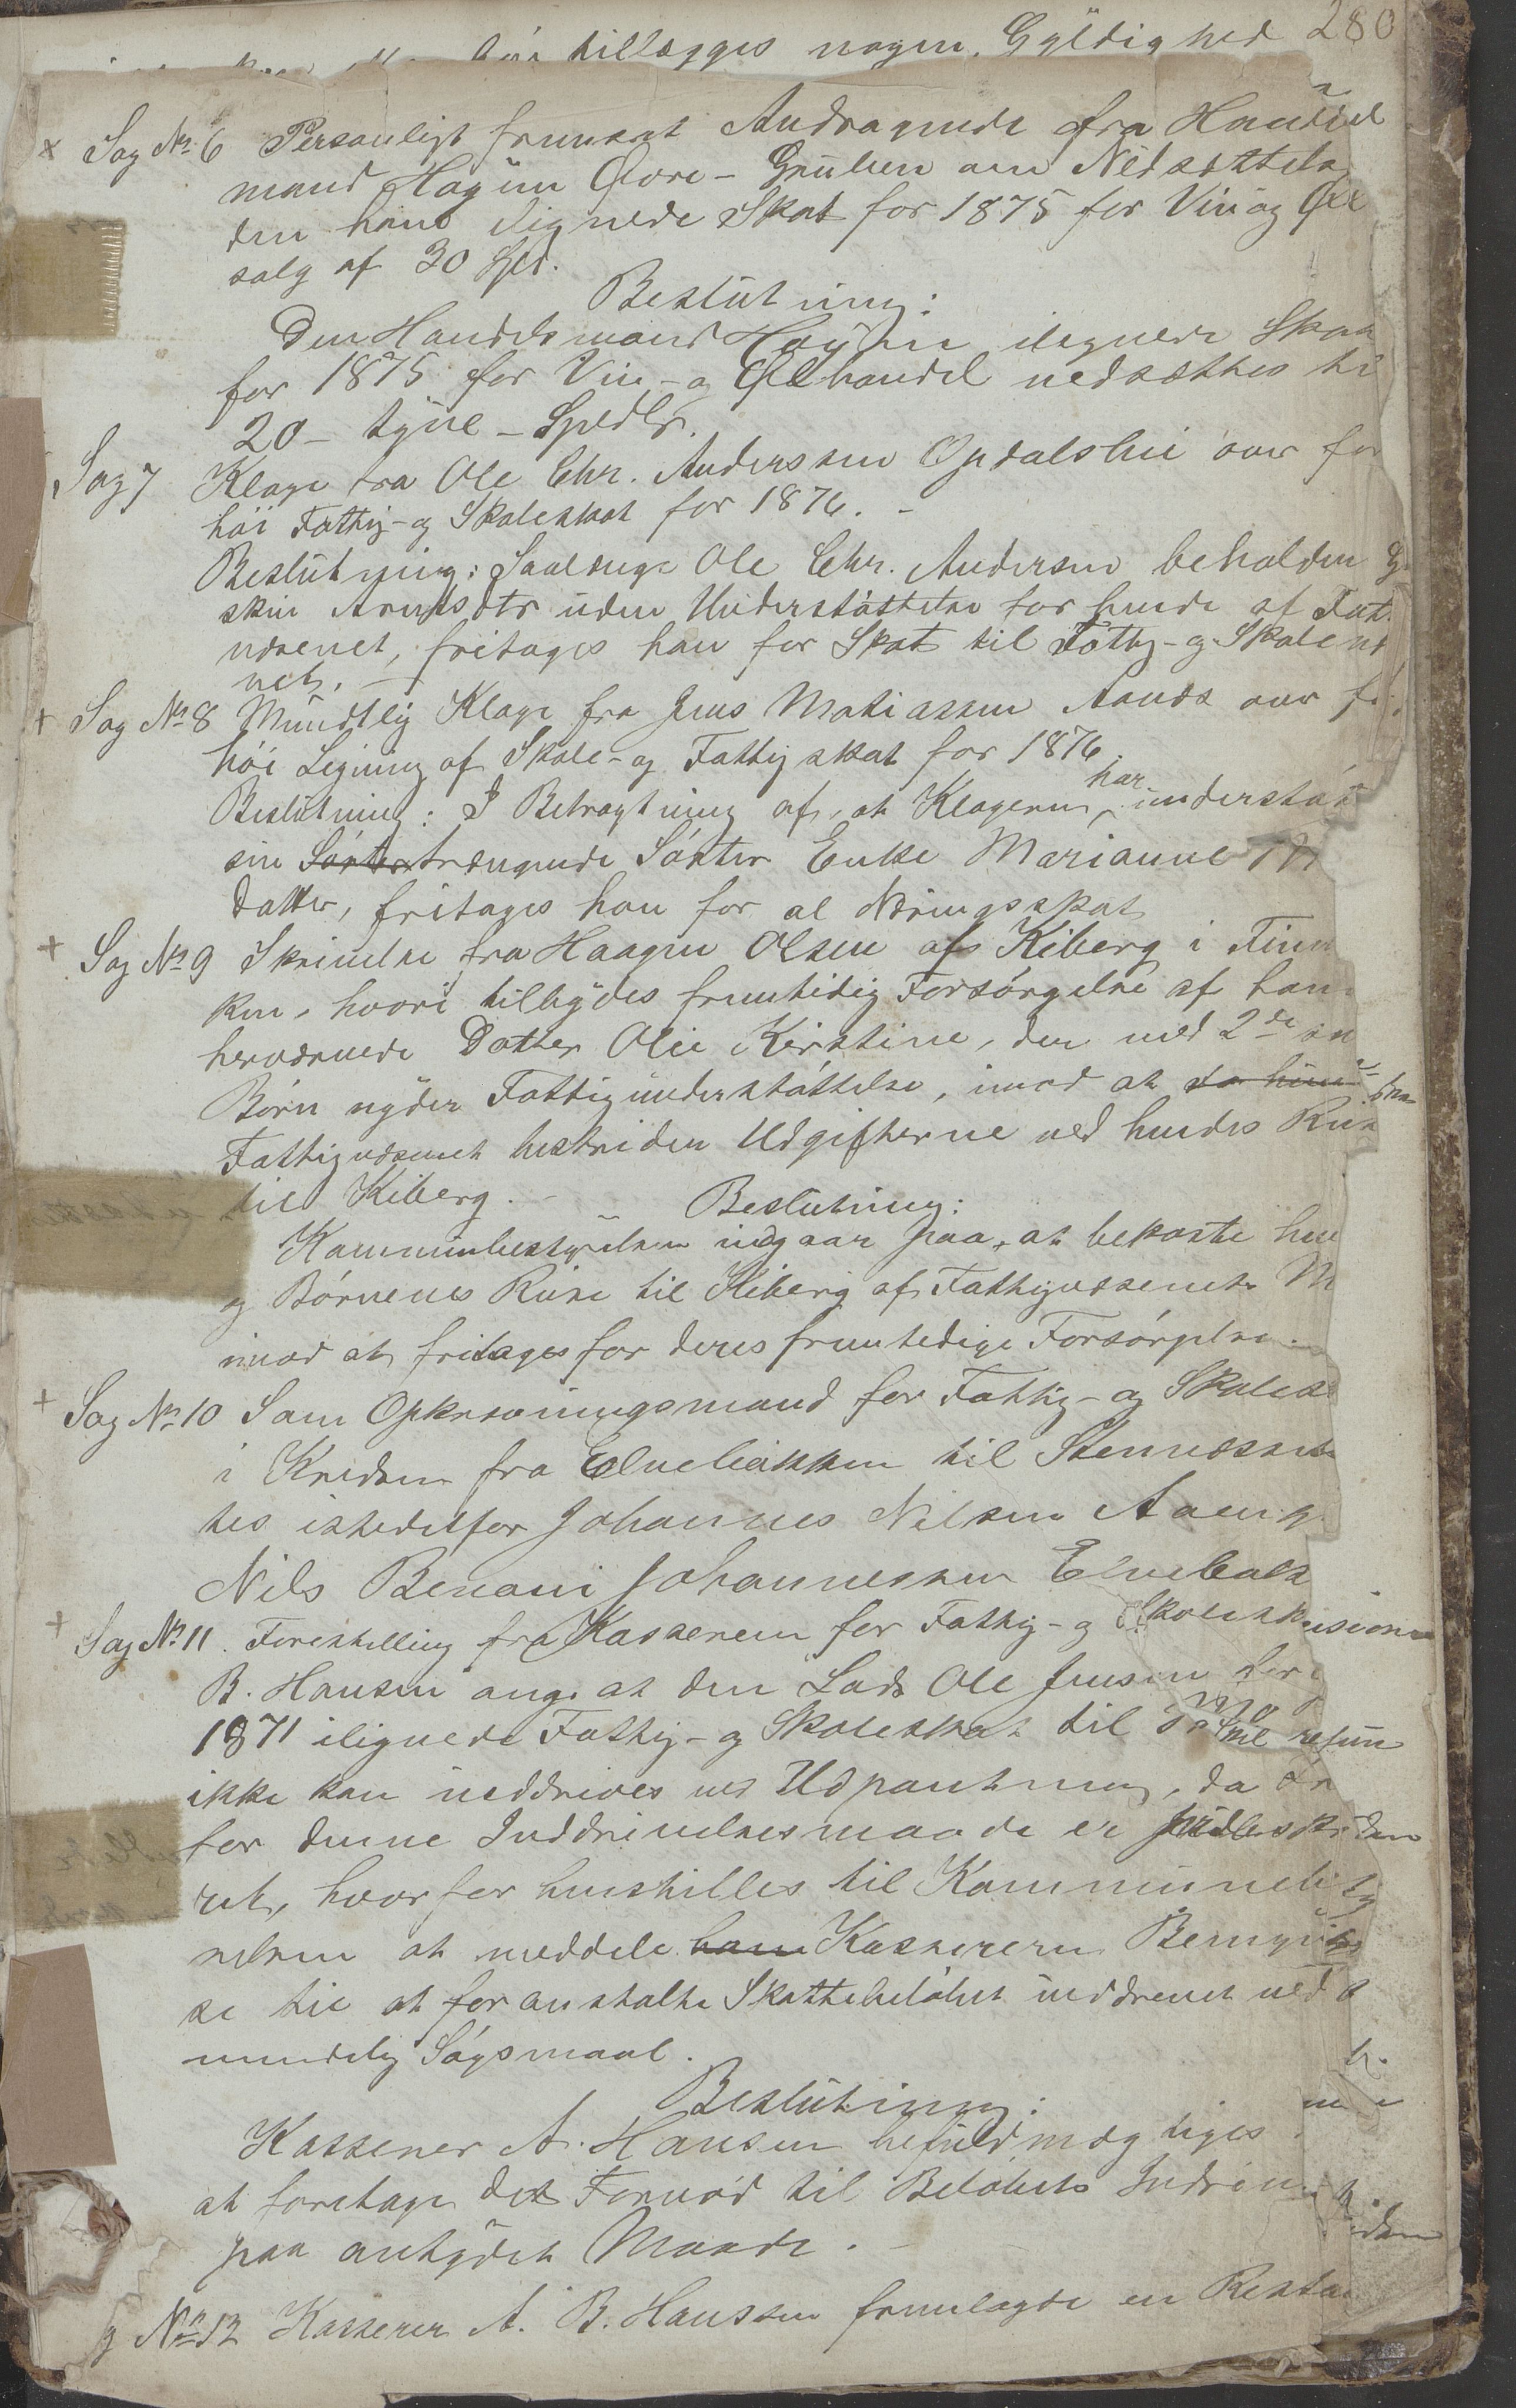 tillægges nogen Gyldighed 280
x Sag No 6 Personligt fremsat Andragende fra Handels
mand Hagün Øvre-Gruben om Nedsættelse
den ham ilignede Skat for 1875 for Vin og Øl
salg af 30 Spd.
Beslutning:
Den Handelsmand Hagün ilignede Skat
for 1875 for Vin- og Ølhandel nedsættes ti
20 - tyve - Spdlr.
Sag 7 Klage fra Ole Chr. Andersen Opdalslie over for
høi Fattig- og Skoleskat for 1876. -
Beslutning: Saalænge Ole Chr. Andersen beholder
Arntsdtr uden Understøttelse for hende af Fat
væsenet, fritages han for Skat til Fattig- og Skolevæ
net. -
+ Sag No 8 Mundtlig Klage fra Jens Matiassen Aanes over fo
høi Ligning af Skole- og Fattigskat for 1876.
Beslutning: I Betragtning af, at Klageren har understøt
sin Søster trængende Søster Enke Marianne M
datter, fritages han for al Næringsskat
+ Sag No 9 Skrivelse fra Haagen Olsen af Kiberg i Finm
ken, hvori tilbydes fremtidig Forsørgelse af han
herværende Datter Olie Kirstine, der med 2de
Børn nyder Fattigunderstøttelse, imod at
Fattigvæsenet bestrider Udgifterne ved hendes Reis
til Kiberg. - Beslutning:
Kommunebestyrelsen indgaar paa, at bekoste hen
og Børnenes Reise til Kiberg af Fattigvæsenets M
imod at fritages for deres fremtidige Forsørgelse.
+ Sag No 10 Som Opkrævningsmand for Fattig- og Skolesk
i Kredsen fra Elvebakken til Stennesset
tes istedetfor Johannes Nilsen Aaeng
Nils Benoni Johannessen Elvebakk
+ Sag No 11. Forestilling fra Kassereren for Fattig- og Skole
B. Hansen ang. at den Lods Ole Jensen for
1871 ilignede Fattig- og Skoleskat til
ikke kan inddrives ved Udpantning, da
for denne Inddrivelsesmaade er
ret, hvorfor henstilles til Kommunebesty
relsen at meddele ham Kassereren Bemyndigel
se til at foranstalte Skattebeløbet inddrevet ved
mindelig Søgsmaal.
Beslutning:
Kasserer A. Hansen befuldmægtiges
at foretage det Fornød. til Beløbets Inddriv
paa antydet Maade. -
g No 12 Kasserer A. B. Hanssen fremlagde en Resta